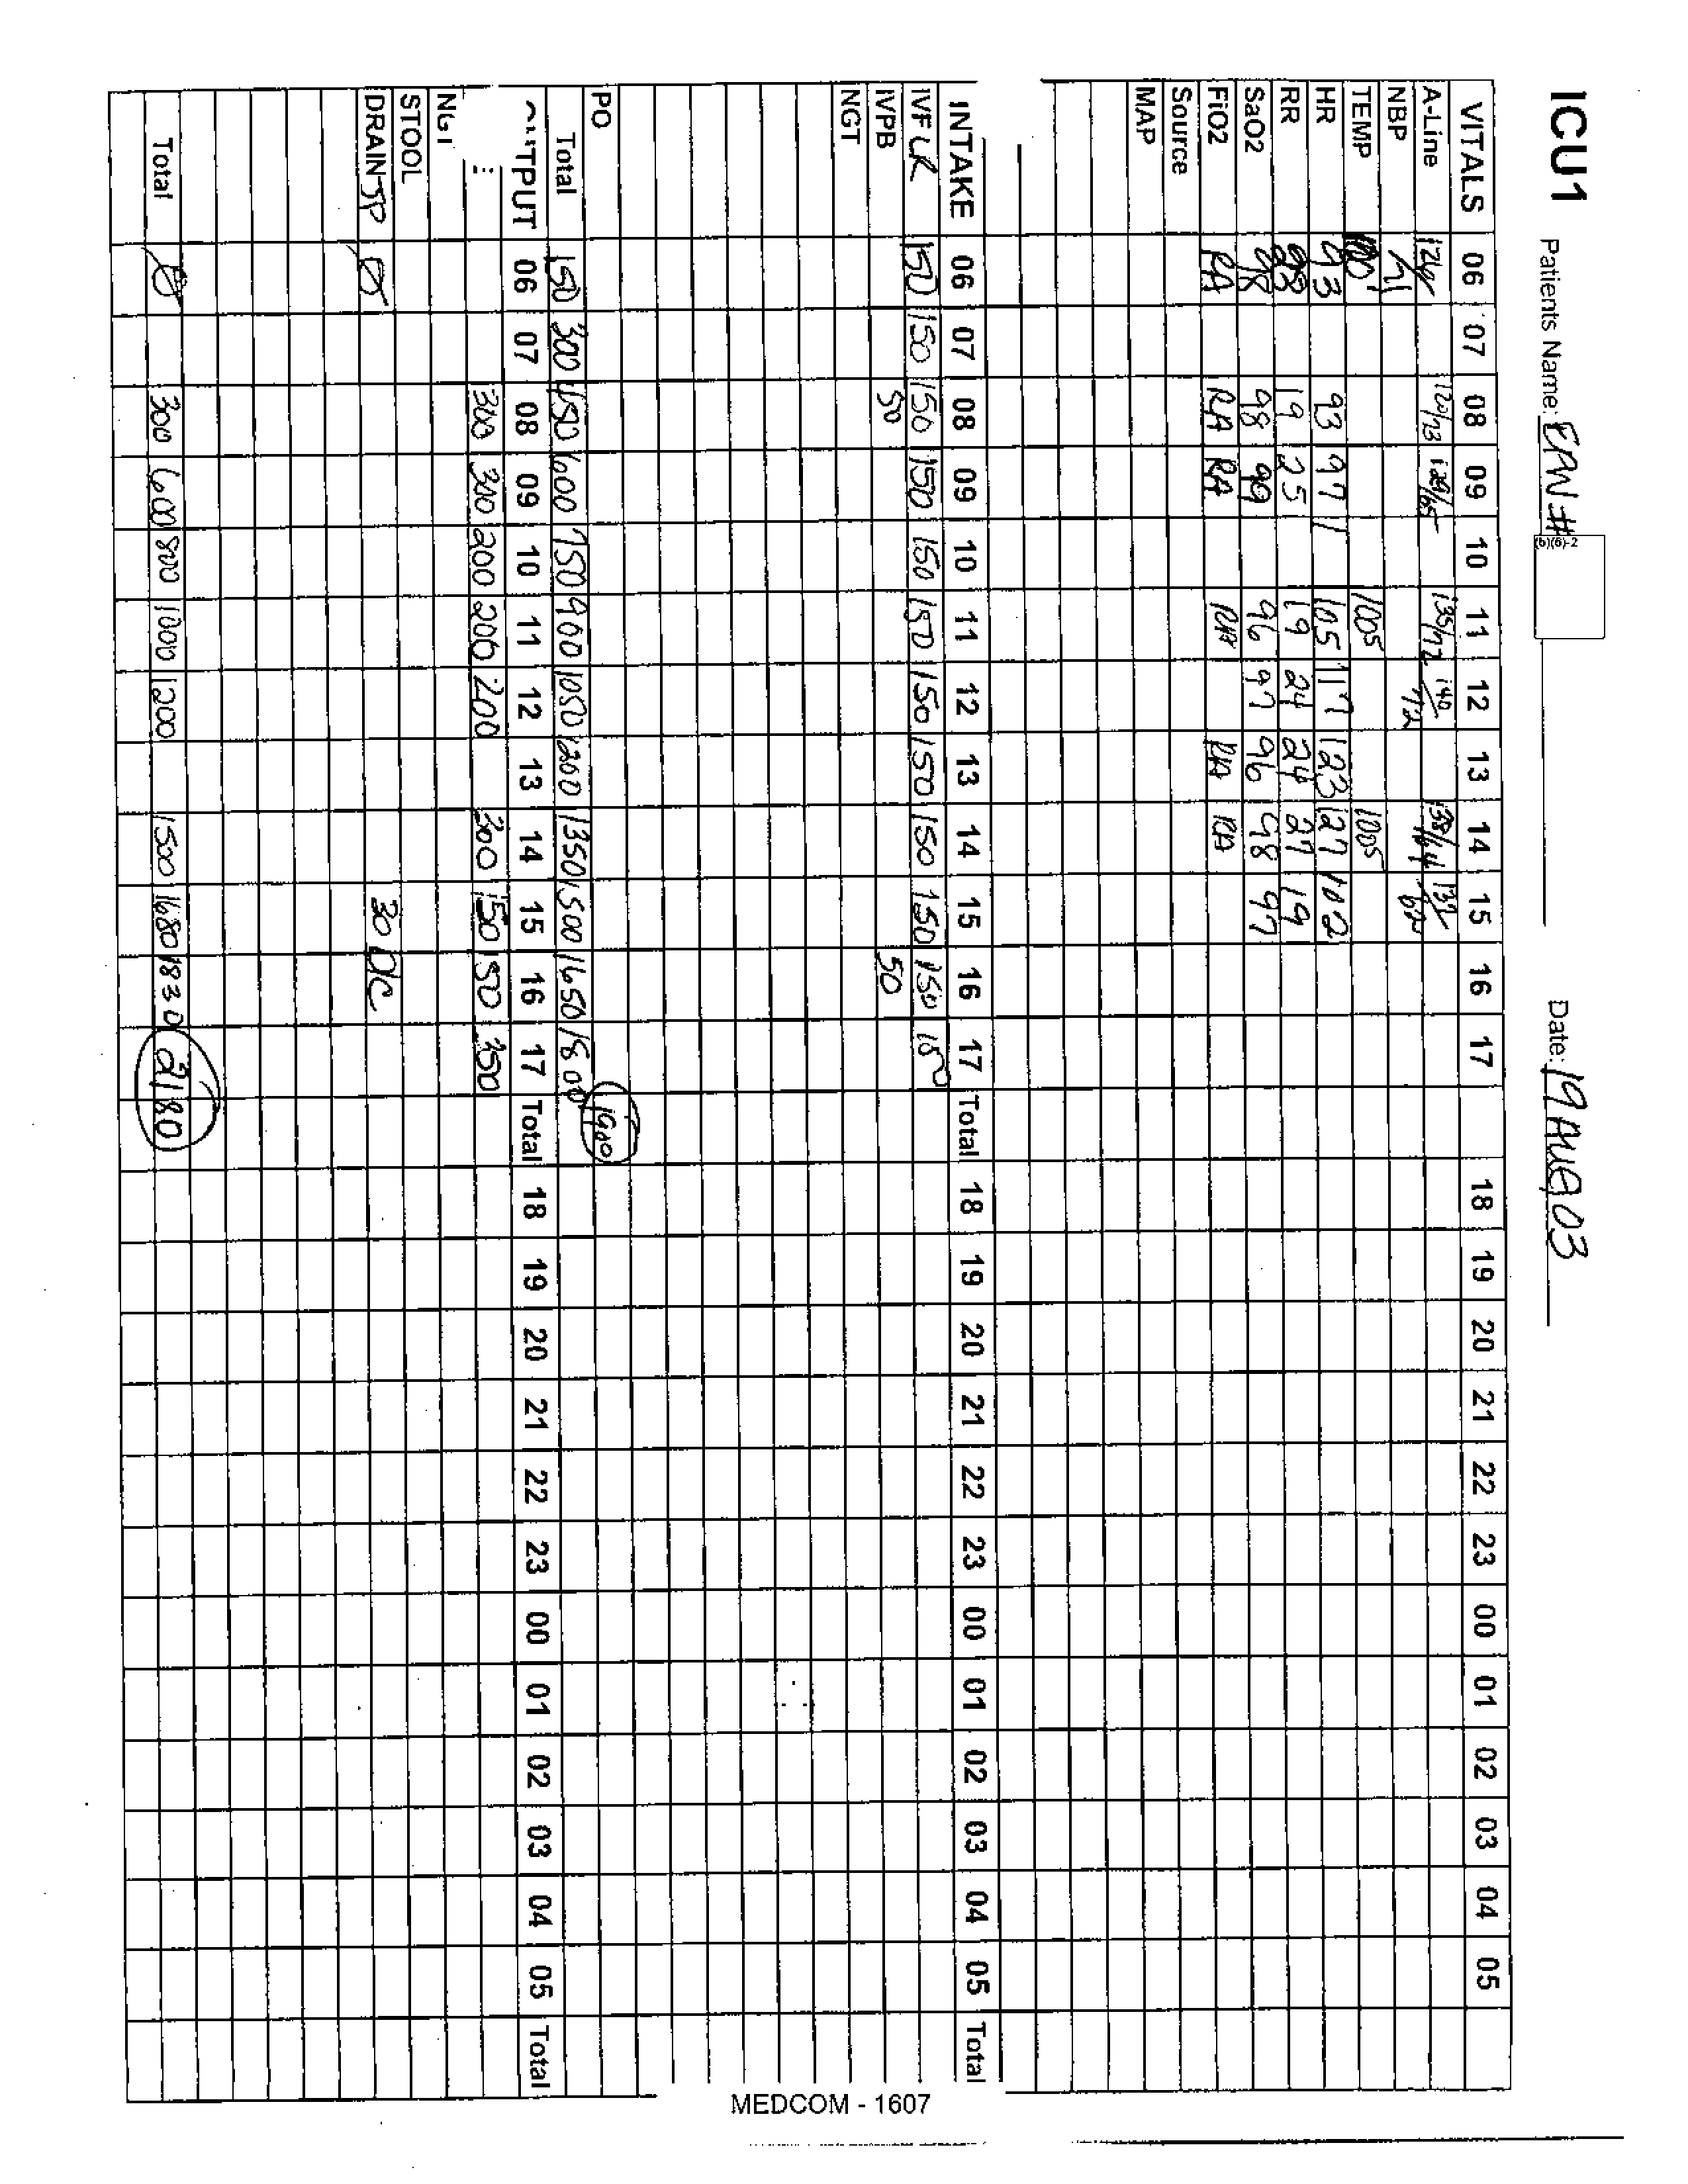 ICU1 Patients Name: EPW # (b)(6)-2 Date: 19 AUG 03
VITALS 06 07 08 09 10 11 12 13 14 15 16 17 18 19 20 21 22 23 00 01 02 03 04 05
A-Line 126/ 120/73 128/65 135/72 140/72 138/64 132/62
NBP 71
TEMP 100 1005 1005
HR 93 93 97 105 117 123 127 102
RR 23 19 25 19 24 24 27 19
SaO2 98 98 99 96 97 96 98 97
FiO2 RA RA RA RA RA RA
Source
MAP
INTAKE 06 07 08 09 10 11 12 13 14 15 16 17 Total 18 19 20 21 22 23 00 01 02 03 04 05 Total
IVF LR 150 150 150 150 150 150 150 150 150 150 150 150
IVPB 50 50
NGT
PO
1900
Total 150 300 450 600 750 900 1050 1200 1350 1500 1650 1800
OUTPUT 06 07 08 09 10 11 12 13 14 15 16 17 Total 18 19 20 21 22 23 00 01 02 03 04 05 Total
300 300 200 200 200 300 150 150 350
NGT
STOOL
DRAIN JP Ø 30 DC
Total Ø 300 600 800 1000 1200 1500 1680 1830 2180
MEDCOM - 1607